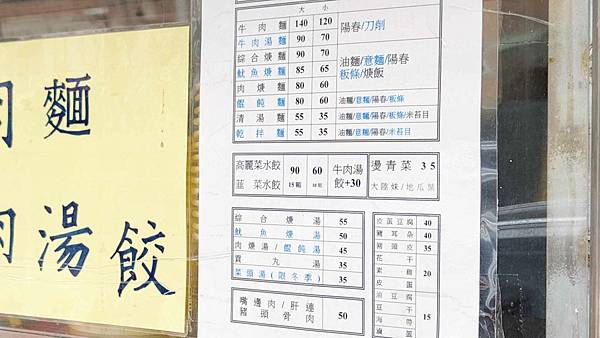 肉 麵
肉 湯 餃
大 小
牛肉麵 140 120 陽春/刀削
牛肉湯麵 90 70
綜合焿麵 90 70 油麵/意麵/陽春
魷魚焿麵 85 65 板條/焿飯
肉焿麵 80 60
餛飩麵 80 60 油麵/意麵/陽春/板條
清湯麵 55 35 油麵/意麵/陽春/板條/米苔目
乾拌麵 55 35 油麵/意麵/陽春/板條/米苔目
高麗菜水餃 90 60 牛肉湯 燙青菜 35
韮菜水餃 15顆 10顆 餃+30 大陸妹/地瓜葉
綜合焿湯 55
魷魚焿湯 50
肉焿湯/餛飩湯 45
貢丸湯 35
菜頭湯(限冬季) 35
嘴邊肉/肝連
豬頭骨肉 50
皮蛋豆腐 40
豬耳朵 40
豬頭皮 35
花干
素雞 20
皮蛋
油豆腐
豆干
海帶 15
滷蛋